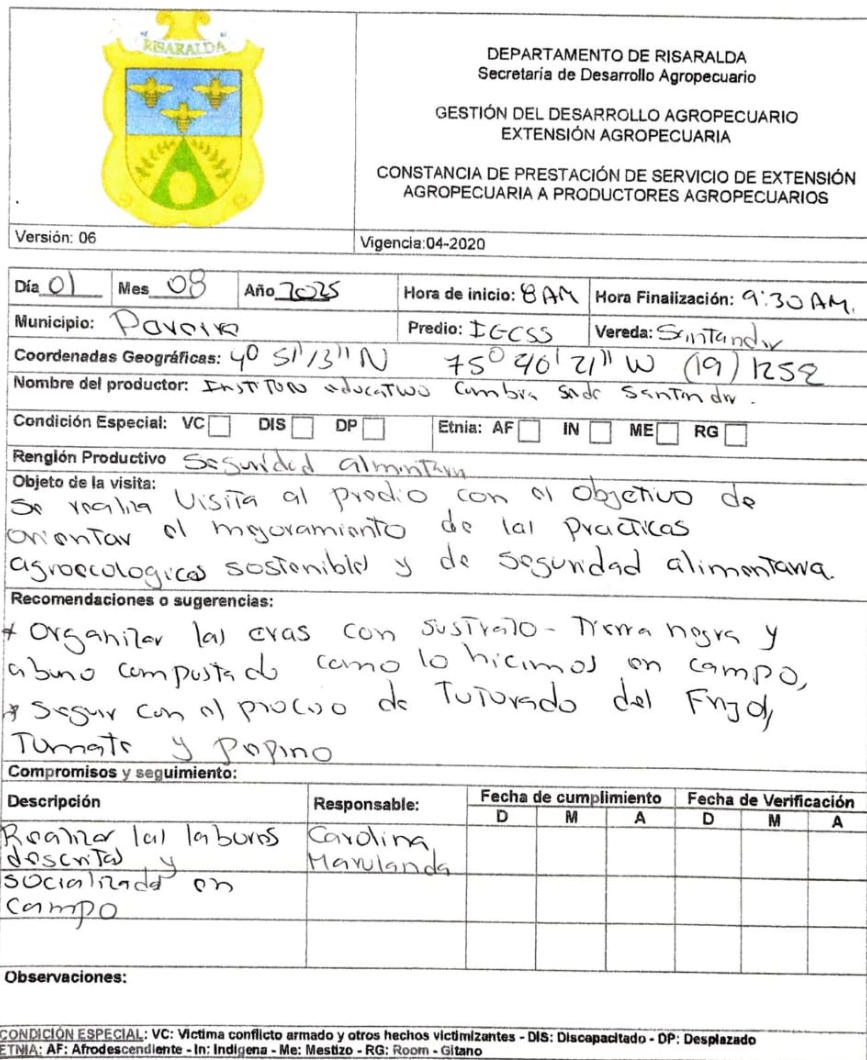 RISARALDA
DEPARTAMENTO DE RISARALDA
Secretaria de Desarrollo Agropecuario
GESTIÓN DEL DESARROLLO AGROPECUARIO
EXTENSIÓN AGROPECUARIA
CONSTANCIA DE PRESTACIÓN DE SERVICIO DE EXTENSIÓN
AGROPECUARIA A PRODUCTORES AGROPECUARIOS
Versión: 06 Vigencia:04-2020
Día 01 Mes 08 Año 2025 Hora de inicio: 8 AM Hora Finalización: 9:30 AM.
Municipio: Predio: IGCSS Vereda: Santander
Coordenadas Geográficas: 4° 51' 13'' N 75° 40' 21'' W (19) 1252
Nombre del productor: Sede Santander.
Condición Especial: VC DIS DP Etnia: AF IN ME RG
Renglón Productivo Seguridad alimentaria
Objeto de la visita:
Se realiza Visita al predio con el Objetivo de
orientar el mejoramiento de las practicas
agroecologicas sostenibles y de seguridad alimentaria.
Recomendaciones o sugerencias:
* Organizar las eras con sustrato - Tierra negra y
abono compostado como lo hicimos en campo,
* Seguir con el proceso de Tuturado del Frijol,
Tomate y Pepino
Compromisos y seguimiento:
Descripción Responsable: Fecha de cumplimiento Fecha de Verificación
D M A D M A
Realizar las labores Carolina
descritas y Marulanda
socializada en
campo
Observaciones:
CONDICIÓN ESPECIAL: VC: Victima conflicto armado y otros hechos victimizantes - DIS: Discapacitado - DP: Desplazado
ETNIA: AF: Afrodescendiente - In: Indigena - Me: Mestizo - RG: Room - Gitano